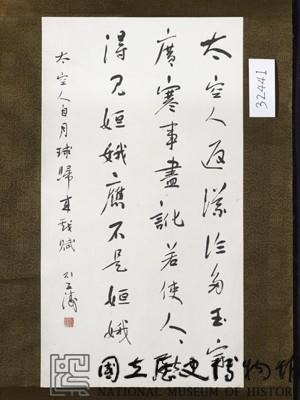 太空人返議論多玉
廣寒事盡訛若使人人
得見姮娥應不是姮娥
太空人自月球歸戲賦
32441
國立歷史博物館
NATIONAL MUSEUM OF HISTORY